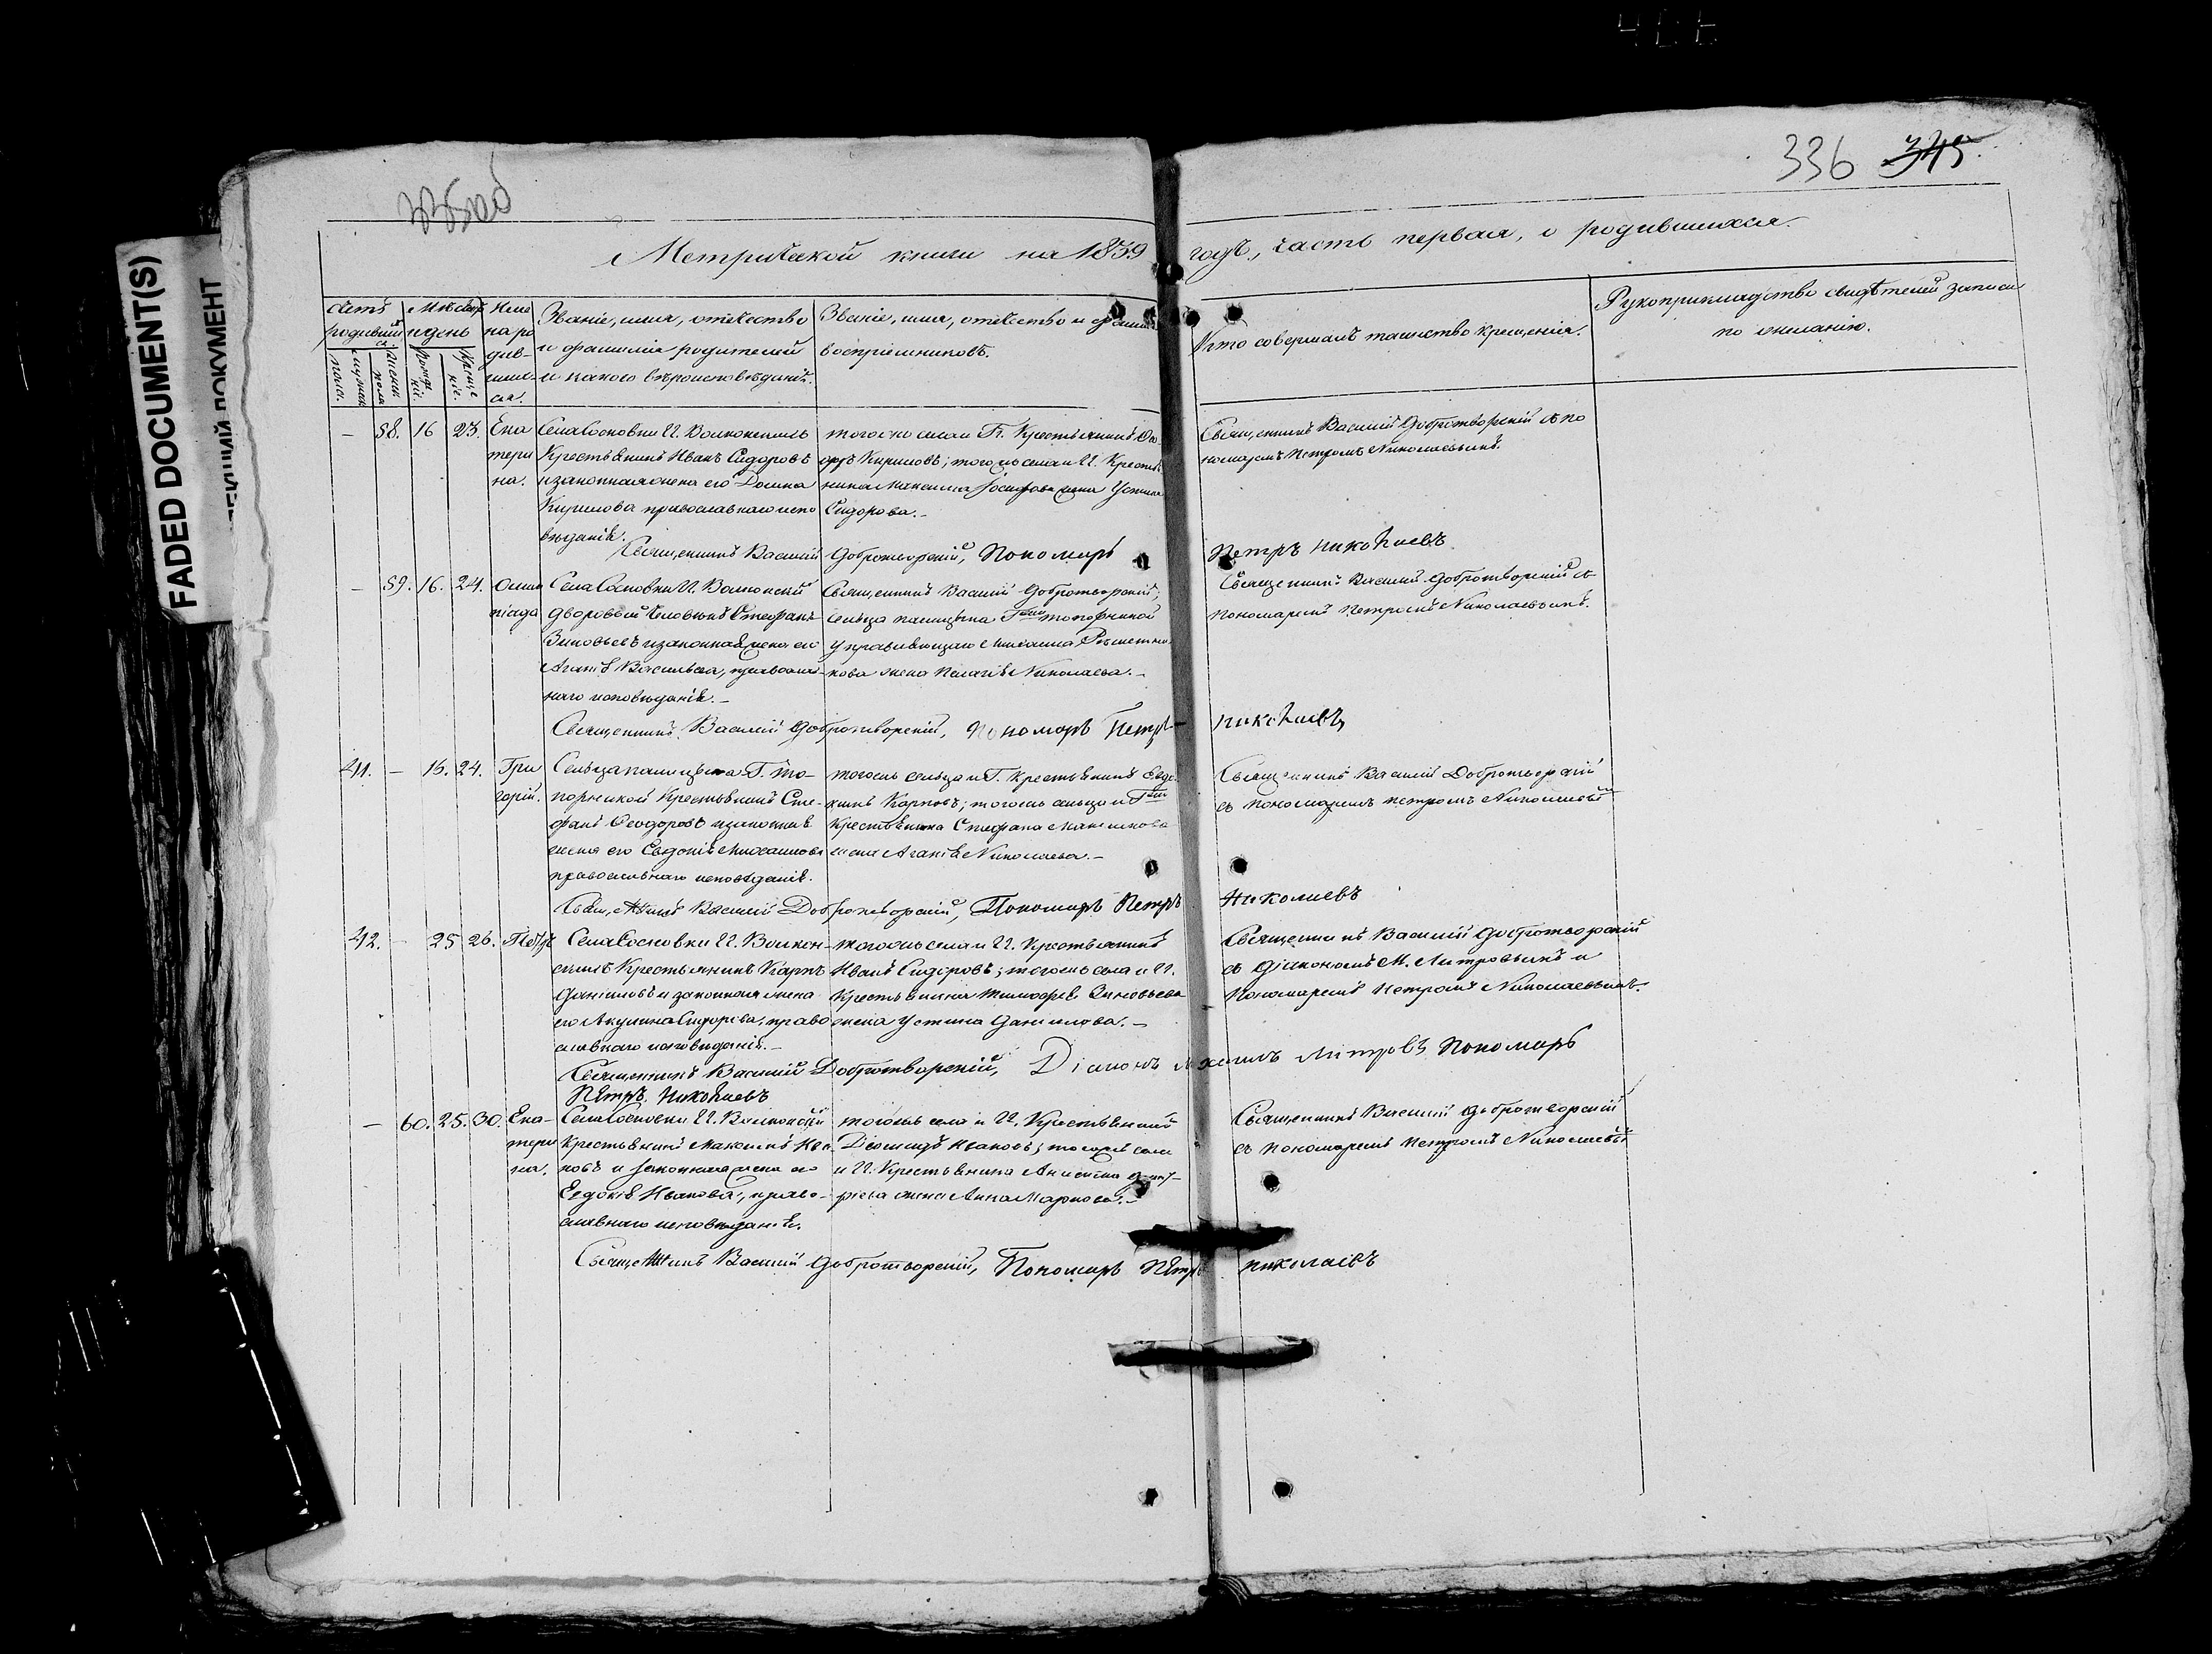 336 345
FADED DOCUMENT(S)
ДОКУМЕНТ
Метрической книги на 1839 годъ, часть первая, о родившихся.
Счетъ родившихся
мужеска пола
женска пола
Мѣсяцъ и день
рожденіе
крещеніе
Имена родившихся.
Званіе, имя, отечество
и фамилія родителей
и какого вѣроисповѣданія.
Званіе, имя, отечество и фамилія
воспріемниковъ.
Кто совершалъ таинство крещенія.
Рукоприкладство свидѣтелей записи
по желанію.
– 58. 16 23. Ека
тери
на.
Села Сосновки И. Волконскихъ
Крестьянинъ Иванъ Сидоровъ
и законная жена его Домна
Кирилова православнаго испо
вѣданія.
того же села и Г. Крестьянинъ Ѳе
доръ Кириловъ; того же села и И. Крестья
нина Максима Іосифова жена Устина
Сидорова. –
Священникъ Василій Добротворскій съ по
номаремъ Петромъ Николаевымъ.
Священникъ Василій Добротворскій, Пономарь Петръ Николаевъ
– 59. 16. 24. Олим
піада
Села Сосновки И. Волконской
Дворовой Человѣкъ Стефанъ
Зиновьевъ и законная жена его
Агапія Васильева, православ-
наго исповѣданія. –
Священникъ Василій Добротворскій;
сельца Палицына Гжи Топорниной
управляющаго Михаила Рѣшетни
кова жена Пелагія Николаева. –
Священникъ Василій Добротворскій съ
пономаремъ Петромъ Николаевымъ.
Священникъ Василій Добротворскій, Пономарь Петръ Николаевъ
41. – 16. 24. Гри
горій.
Сельца Палицына Г. То-
порниной Крестьянинъ Сте-
фанъ Ѳеодоровъ и законная
жена его Евдокія Михайлова
православнаго исповѣданія.
того же сельца и Г. Крестьянинъ Евдо
кимъ Карповъ; того же сельца и Гжи
Крестьянина Стефана Максимова
жена Агапія Николаева. –
Священникъ Василій Добротворскій
съ пономаремъ Петромъ Николаевымъ
Священникъ Василій Добротворскій, Пономарь Петръ Николаевъ
42. – 25 26. Петръ
Села Сосновки И. Волкон-
скихъ Крестьянинъ Карпъ
Даніиловъ и законная жена
его Акулина Сидорова, право
славнаго исповѣданія. –
того же села и И. Крестьянинъ
Иванъ Сидоровъ; того же села и И.
Крестьянина Тимофея Зиновьева
жена Устина Даніилова. –
Священникъ Василій Добротворскій
съ Діакономъ М. Митровымъ и
Пономаремъ Петромъ Николаевымъ.
Священникъ Василій Добротворскій, Діаконъ Михаилъ Митровъ Пономарь
Петръ Николаевъ
– 60. 25. 30. Ека-
тери
на.
Села Сосновки И. Волконской
Крестьянинъ Максимъ Ива
новъ и законная жена его
Евдокія Иванова, право-
славнаго исповѣданія.
того же села и И. Крестьянинъ
Діомидъ Ивановъ; того же села
и И. Крестьянина Анисима Дмит-
ріева жена Анна Маркова. –
Священникъ Василій Добротворскій
съ пономаремъ Петромъ Николаевымъ
Священникъ Василій Добротворскій, Пономарь Петръ Николаевъ